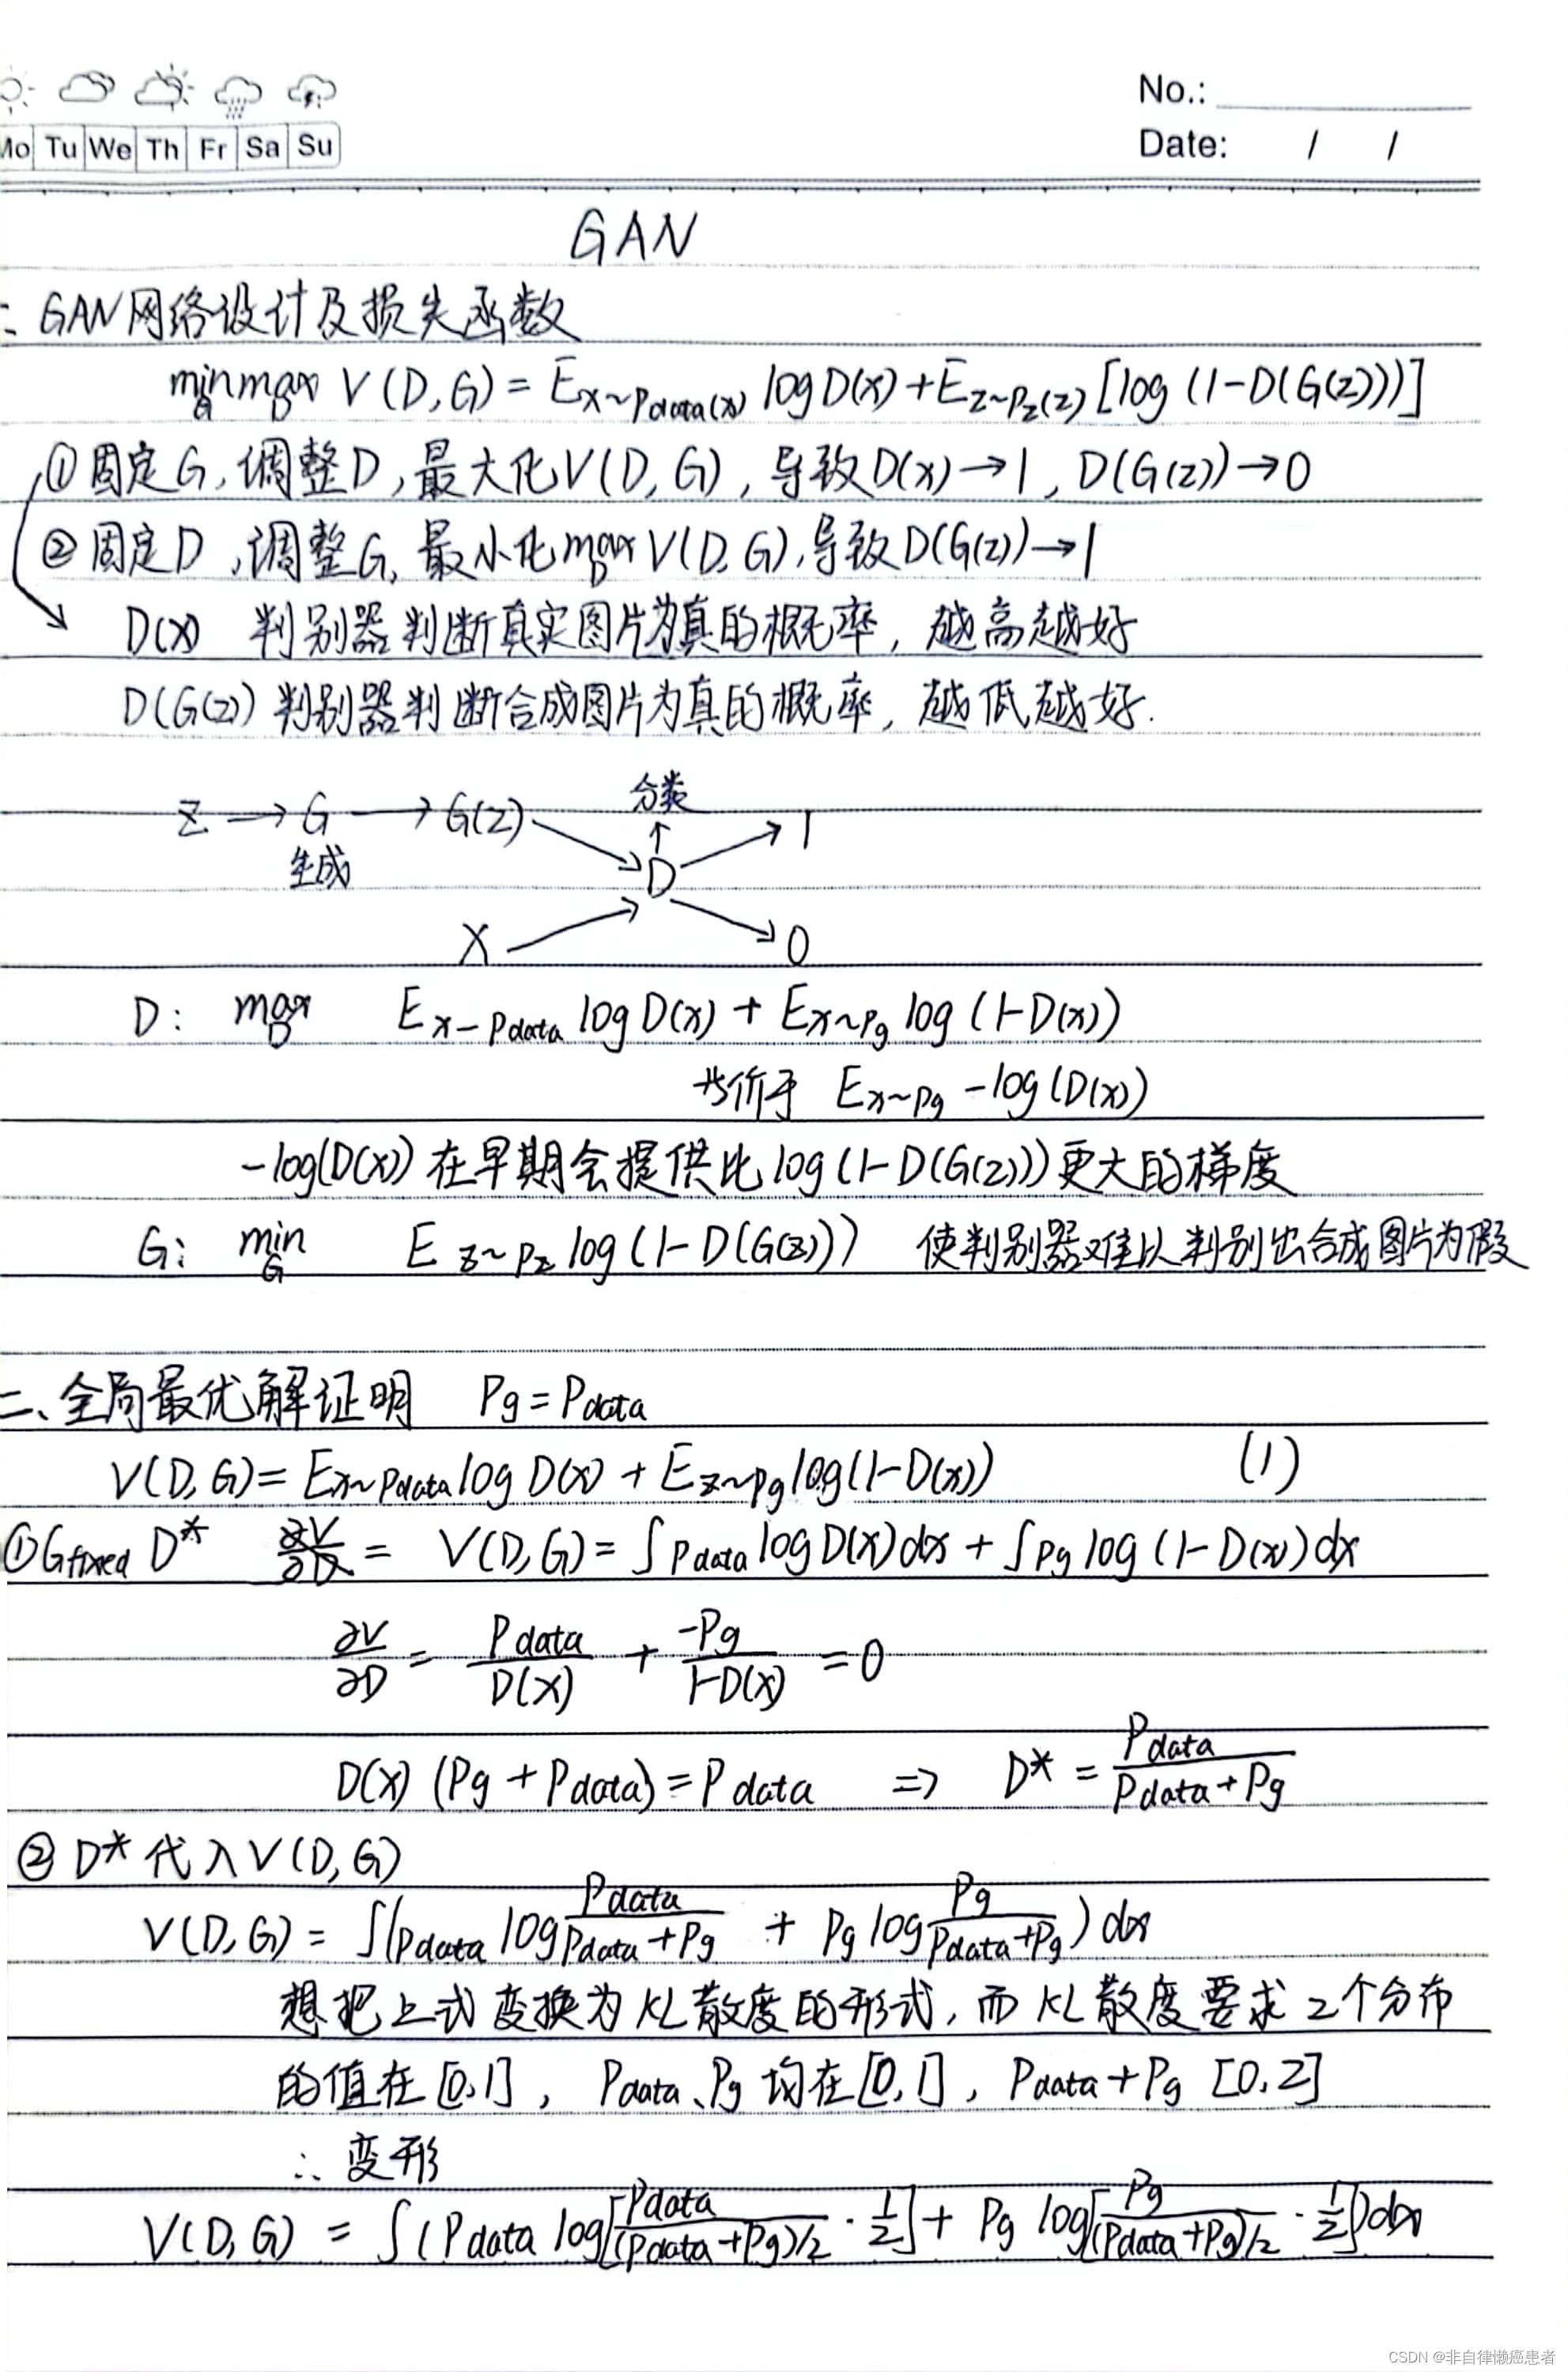 Mo Tu We Th Fr Sa Su
No.:
Date: / /
GAN
GAN网络设计及损失函数
min_G max_D V(D,G) = E_{x~Pdata(x)} log D(x) + E_{z~Pz(z)} [log (1-D(G(z)))]
①固定G,调整D,最大化V(D,G),导致D(x)→1,D(G(z))→0
②固定D,调整G,最小化max_D V(D,G),导致D(G(z))→1
D(x) 判别器判断真实图片为真的概率,越高越好
D(G(z)) 判别器判断合成图片为真的概率,越低越好.
分类
Z → G → G(z) ↑ 1
生成 D
X 0
D: max_D E_{x-Pdata} log D(x) + E_{x~Pg} log (1-D(x))
当价于 E_{x~Pg} -log(D(x))
-log(D(x)) 在早期会提供比log(1-D(G(z)))更大的梯度
G: min_G E_{z~Pz} log(1-D(G(z))) 使判别器难以判别出合成图片为假
二、全局最优解证明 Pg = Pdata
V(D,G) = E_{x~Pdata} log D(x) + E_{z~Pg} log(1-D(x)) (1)
①G_fixed D* = V(D,G) = ∫Pdata log D(x) dx + ∫Pg log (1-D(x)) dx
∂V/∂D = Pdata/D(x) + -Pg/1-D(x) = 0
D(x) (Pg + Pdata) = Pdata ⇒ D* = Pdata/Pdata+Pg
② D*代入V(D,G)
V(D,G) = ∫(Pdata log Pdata/Pdata+Pg + Pg log Pg/Pdata+Pg) dx
想把上式变换为KL散度的形式,而KL散度要求2个分布
的值在[0,1], Pdata、Pg 均在[0,1], Pdata+Pg [0,2]
∴ 变形
V(D,G) = ∫(Pdata log[Pdata/(Pdata+Pg)/2 · 1/2] + Pg log[Pg/(Pdata+Pg)/2 · 1/2])dx
CSDN @非自律懒癌患者